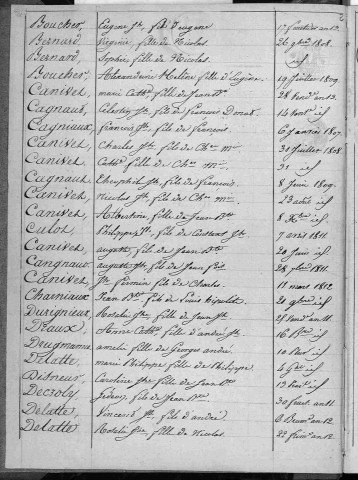 Boucher, Eugène Jh, fils d'eugene 17 fructidor an 13.
Bernard, Virginie, fille de Nicolas 26 9bre 1808.
Bernard, Sophie, fille de Nicolas. id
Boucher, Alexandrine Hélène, fille d'Eugène 19 juillet 1809.
Canivet, marie Cathe fille de Jean Bte 28 Vend. an 13.
Cagnaux, Célestin, Jh, fils de francois Donat 14 id
Cagniaux, francois Jh, fils de francois 6 janvier 1807.
Canivet, Charles Jh, fils de Ch. Mie 31 juillet 1808.
Canivet, Cathe fille de Ch. Mie 31 id
Cagnaux, Théophile Jh. fils de francois 8 juin 1809.
Canivet, Nicolas Jh, fils de Ch. Mie 23 août id
Canivet, Albertine, fille de Jean Bte 8 Xbre id
Culot, Philippe Jh, fils de Constant Jh. 7 avril 1811.
Canivet, augustin, fils de Jean Bte 20 juin id
Cangnaux, auguste Jh, fils de Jean Bte 28 9bre 1811.
Canivet, Jh firmin, fils de Charles. 11 mars 1812
Charniaux, Jean Bte, fils de Louis hipolite. 21 9bre id
Durignieux, Rosalie Jhe, fille de Jean Jh 25 Vend an 11.
Draux, Marie Cathe, fille d'andré Jh. 16 id
Drugmanne, amélie fille de Georges andré. 10 id
Delatte, marie Philippe fille de Philippe 4 id
Disneur, Caroline Jhe, fille de Jean Bte 13 id
Deczoly, fils de Jean Bte 30 an 11.
Delatte, Vincent Jh. fils d'andré 8 Brum. an 12.
Delatte, Rosalie Jhe, fille de Nicolas. 22 frim. an 12.